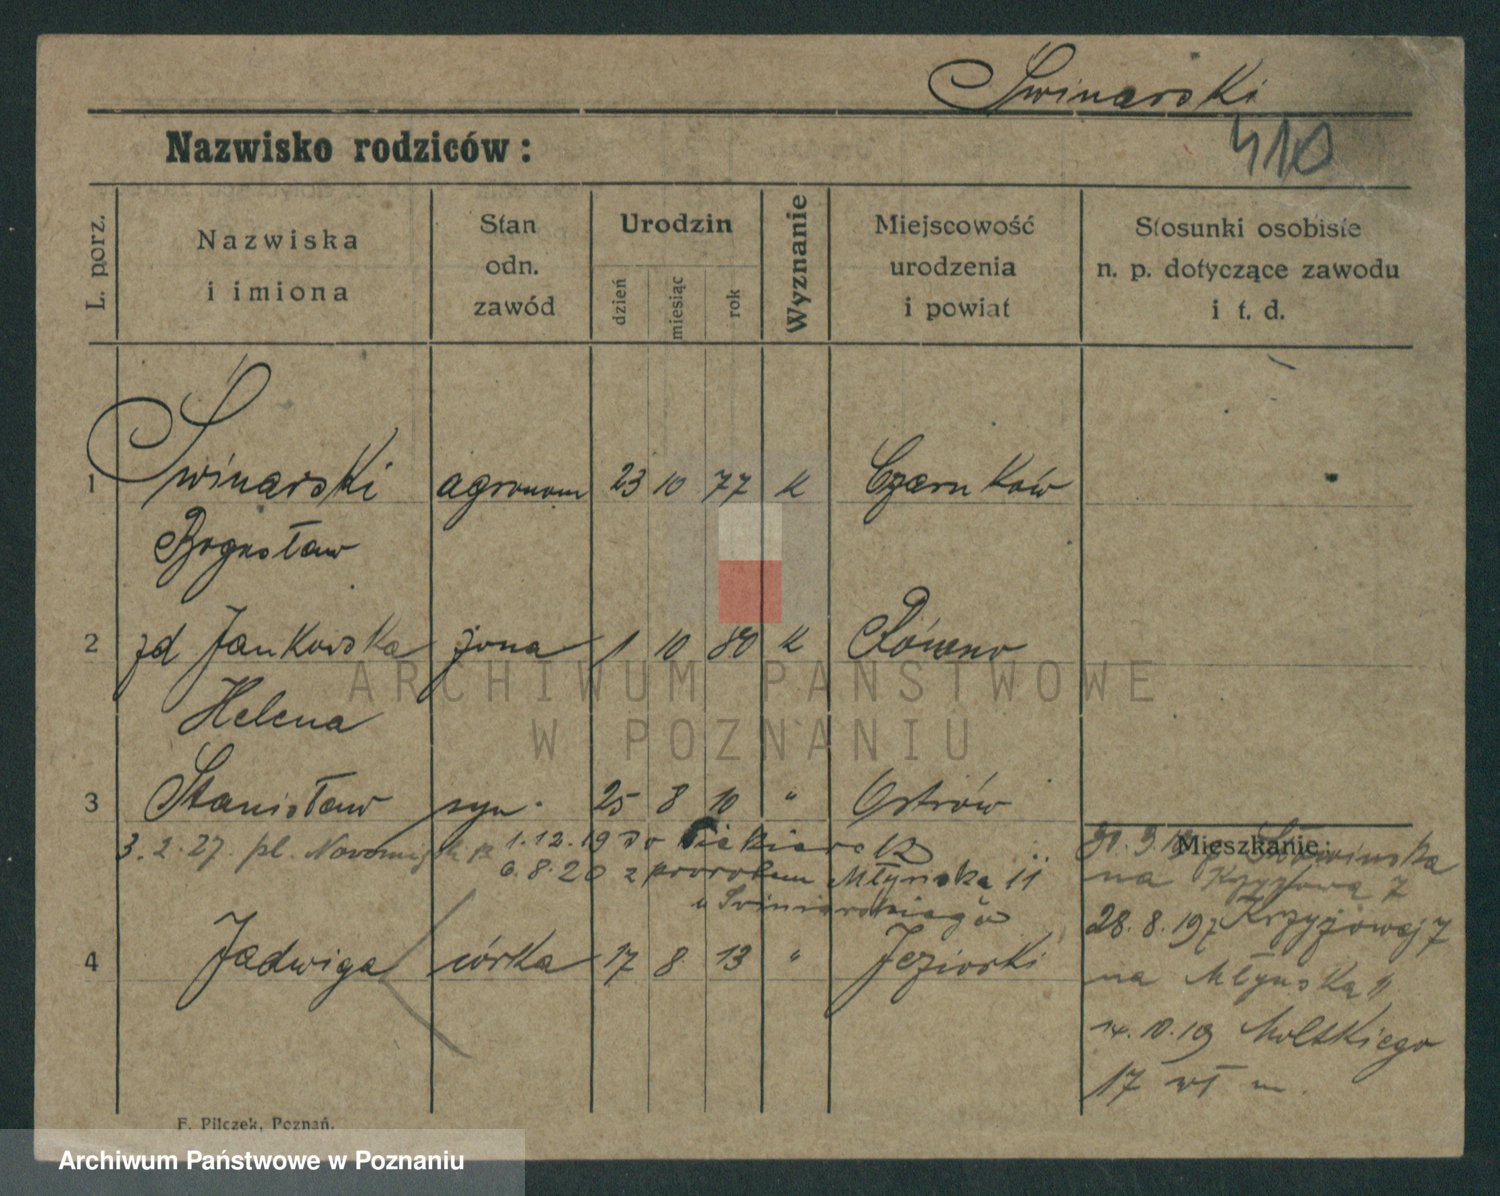 Swinarski
410
Nazwisko rodziców:
L. porz.
Nazwiska
i imiona
Stan
odn.
zawód
Urodzin
dzień
miesiąc
rok
Wyznanie
Miejscowość
urodzenia
i powiat
Stosunki osobiste
n. p. dotyczące zawodu
i t. d.
1 Swinarski agronom 23 10 77 k Czarnków
Bogusław
2 zd Jankowska żona 1 10 80 k Równo
Helena
3 Stanisław syn 25 8 10 " Ostrów
Mieszkanie:
3.2.27. pl. 1.12.19 do
6.8.20 z powrotem Młyńska 11
u Swiniarskiego
na Krzyżowa 7
28.8.19 z Krzyżowej 7
na Młyńska 11
14.10.19 Moltkiego
17 wł m.
4 Jadwiga córka 17 8 13 " Jeziorki
F. Pilczek, Poznań.
ARCHIWUM PAŃSTWOWE
W POZNANIU
Archiwum Państwowe w Poznaniu